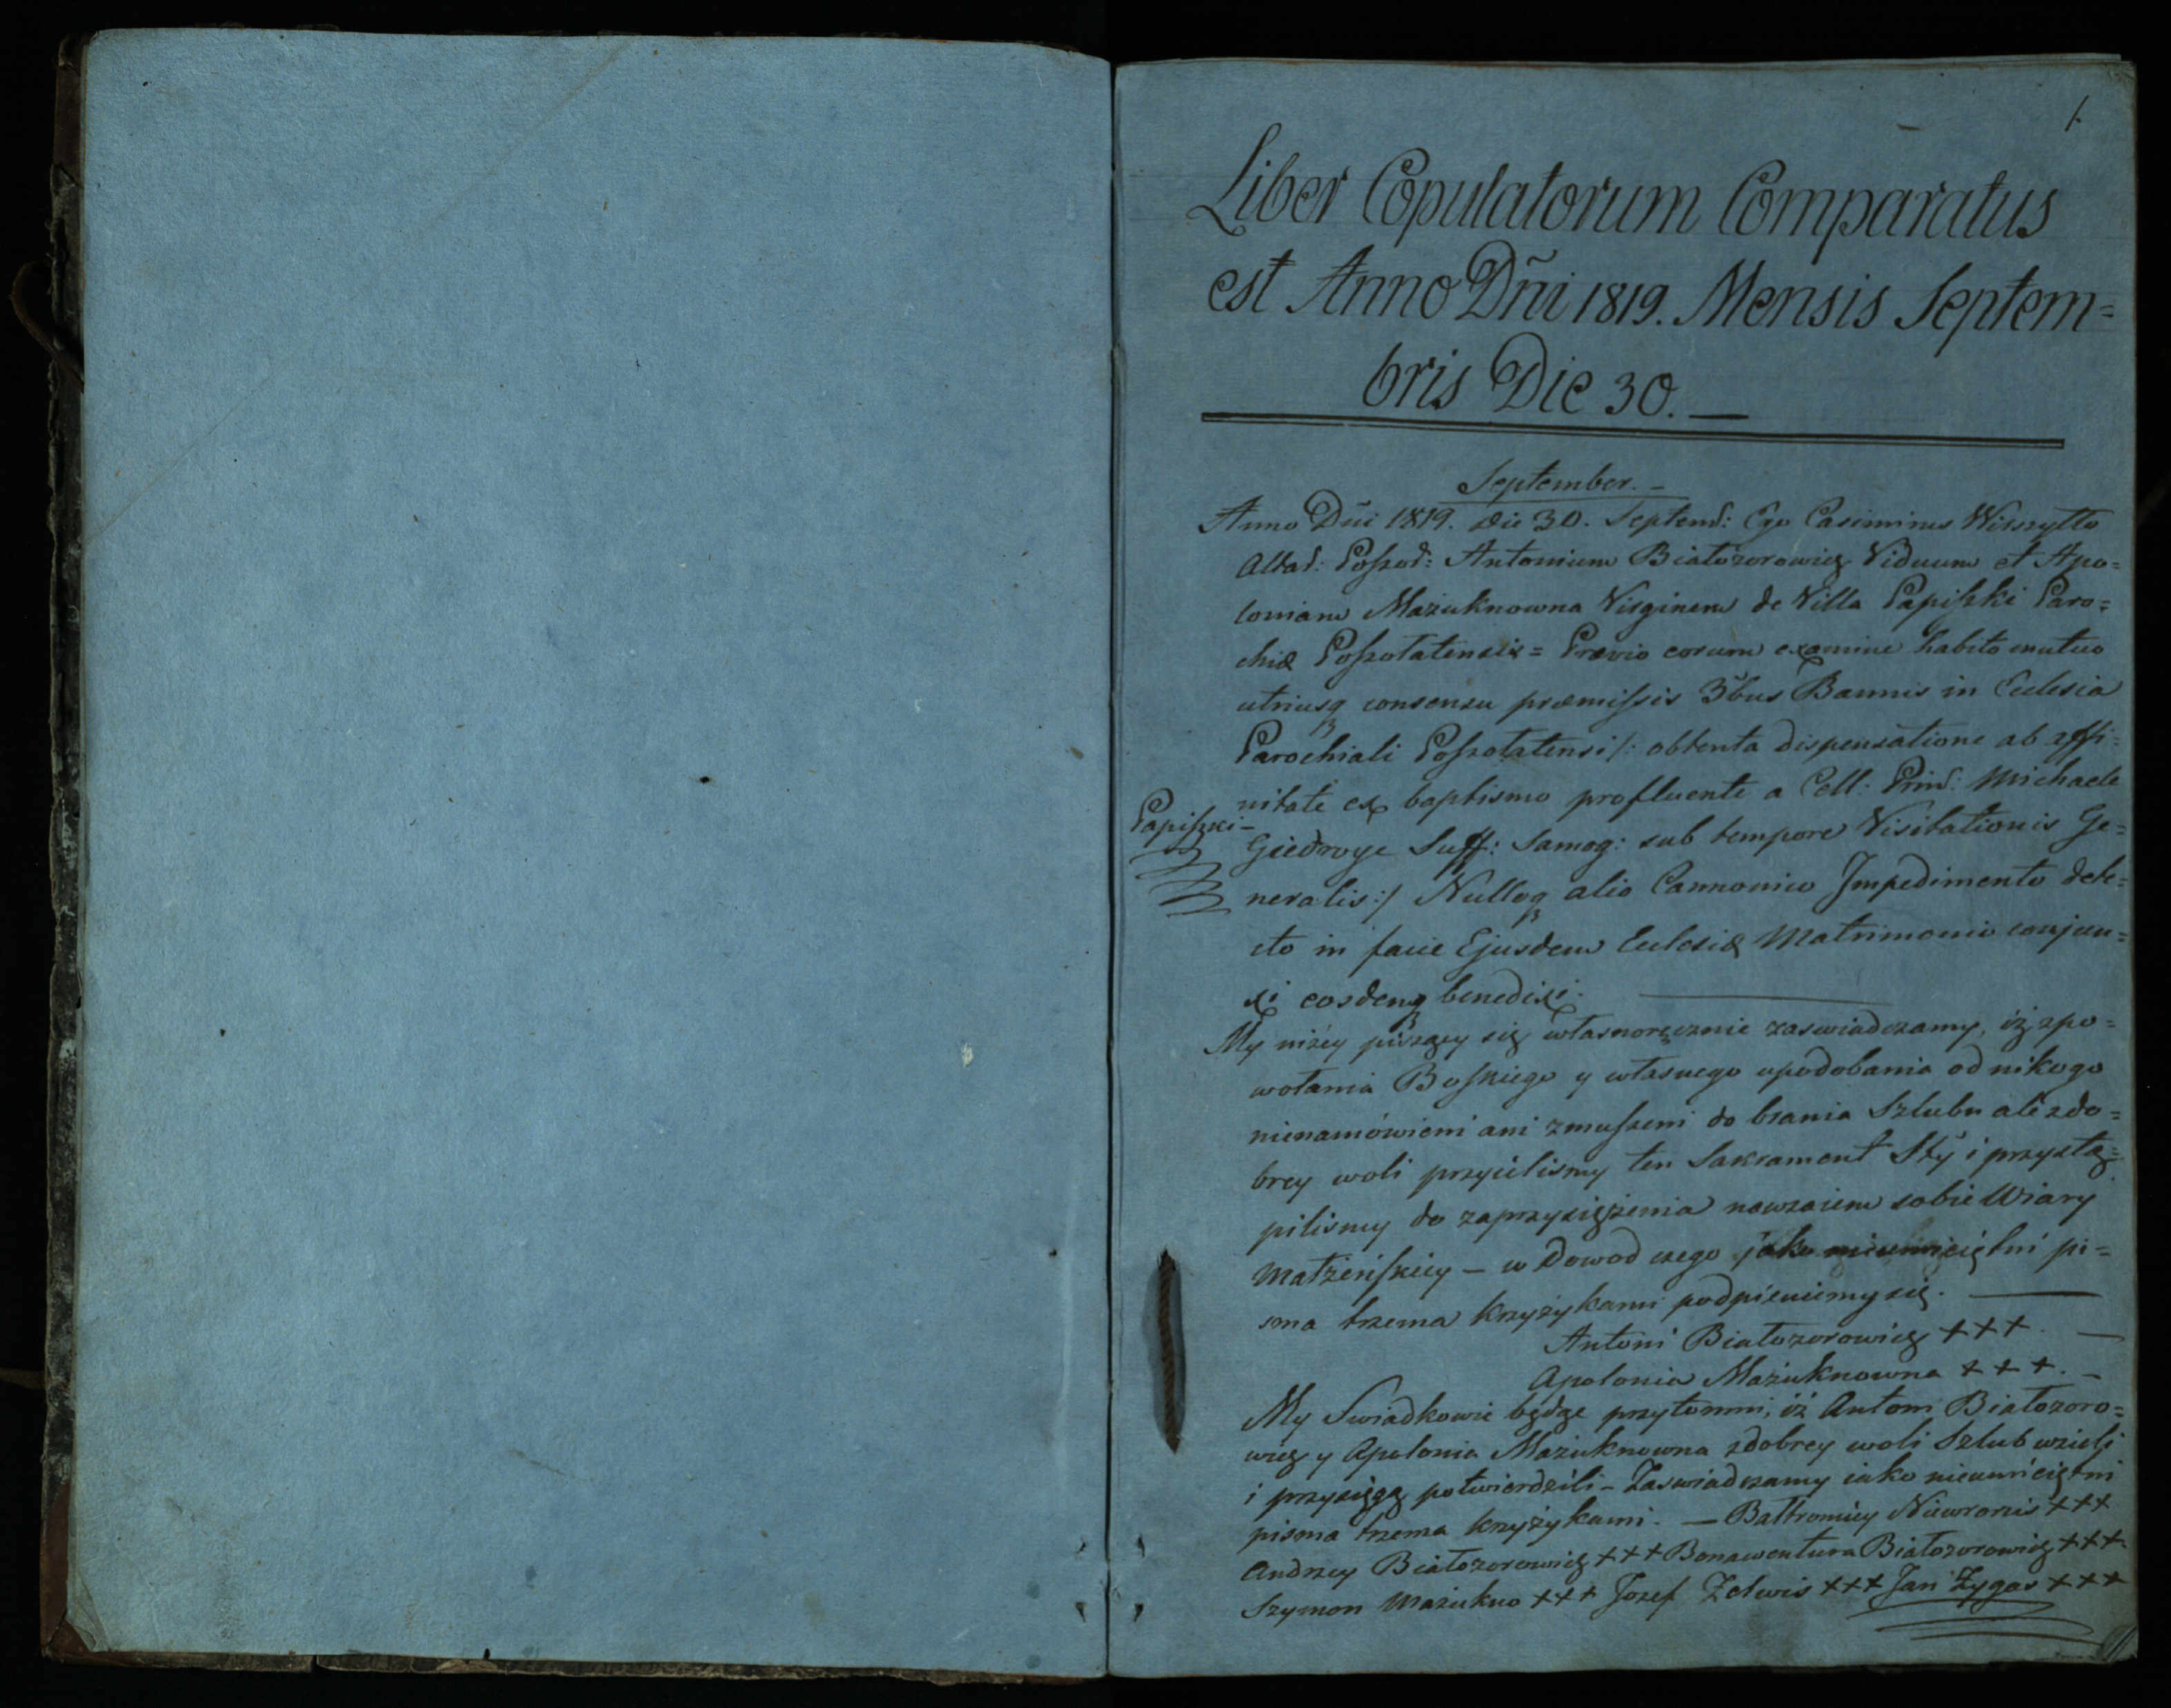 1.
Liber Copulatorum Comparatus
est Anno Dñi 1819. Mensis Septem=
bris Die 30. —
September. —
Anno Dñi 1819. die 30. Septemb: Ego Casimirus Wirszyłło
Altar: Poszoł: Antonium Białozorowicz Viduum et Apo=
loniam Mażuknowna Virginem de Villa Papiszki Paro=
chiæ Poszołatensis = Prævio eorum examine habito mutuo
utriusq3 consensu præmissis 3bus Bannis in Eclesia
Parochiali Poszołatensi /: obtenta dispensatione ab affi=
nitate ex baptismo profluente a Cell: Prin: Michaele
Papiszki —
Giedroyc Suff: Samog: sub tempore Visitationis Ge=
neralis :/ Nulloq3 alio Cannonico Impedimento dete=
cto in facie Ejusdem Eclesiæ Matrimonio conjun=
xi eosdemq3 benedixi. —
My niżey piszący się własnoręcznie zaswiadczamy, iż z po=
wołania Boskiego y własnego upodobania od nikogo
nienamówieni ani zmuszeni do brania Szlubu ale z do=
brey woli przyieliśmy ten Sakrament Sty i przystą=
piliśmy do zaprzysiężenia nawzaiem sobie Wiary
Małżeńskiey — w Dowod czego jako nieumieiętni pi=
sma trzema krzyżykami podpisuiemy się. —
Antoni Białozorowicz +++. —
Apolonia Mażuknowna +++. —
My Swiadkowie będąc przytomni, iż Antoni Białozoro=
wicz y Apolonia Mażuknowna z dobrey woli Szlub wzieli
i przysięgą potwierdzili — Zaswiadczamy iako nieumieiętni
pisma trzema krzyżykami. — Bałtromiey Niewronis +++
Andrzey Białozorowicz +++ Bonawentura Białozorowicz +++
Szymon Mażukno +++ Jozef Zelwis +++ Jan Zygas +++